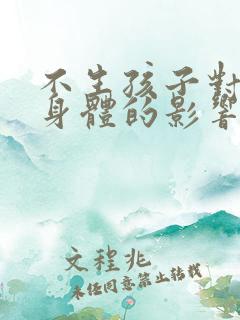 不生孩子對
身體的影響
文程兆
未經同意禁止轉載